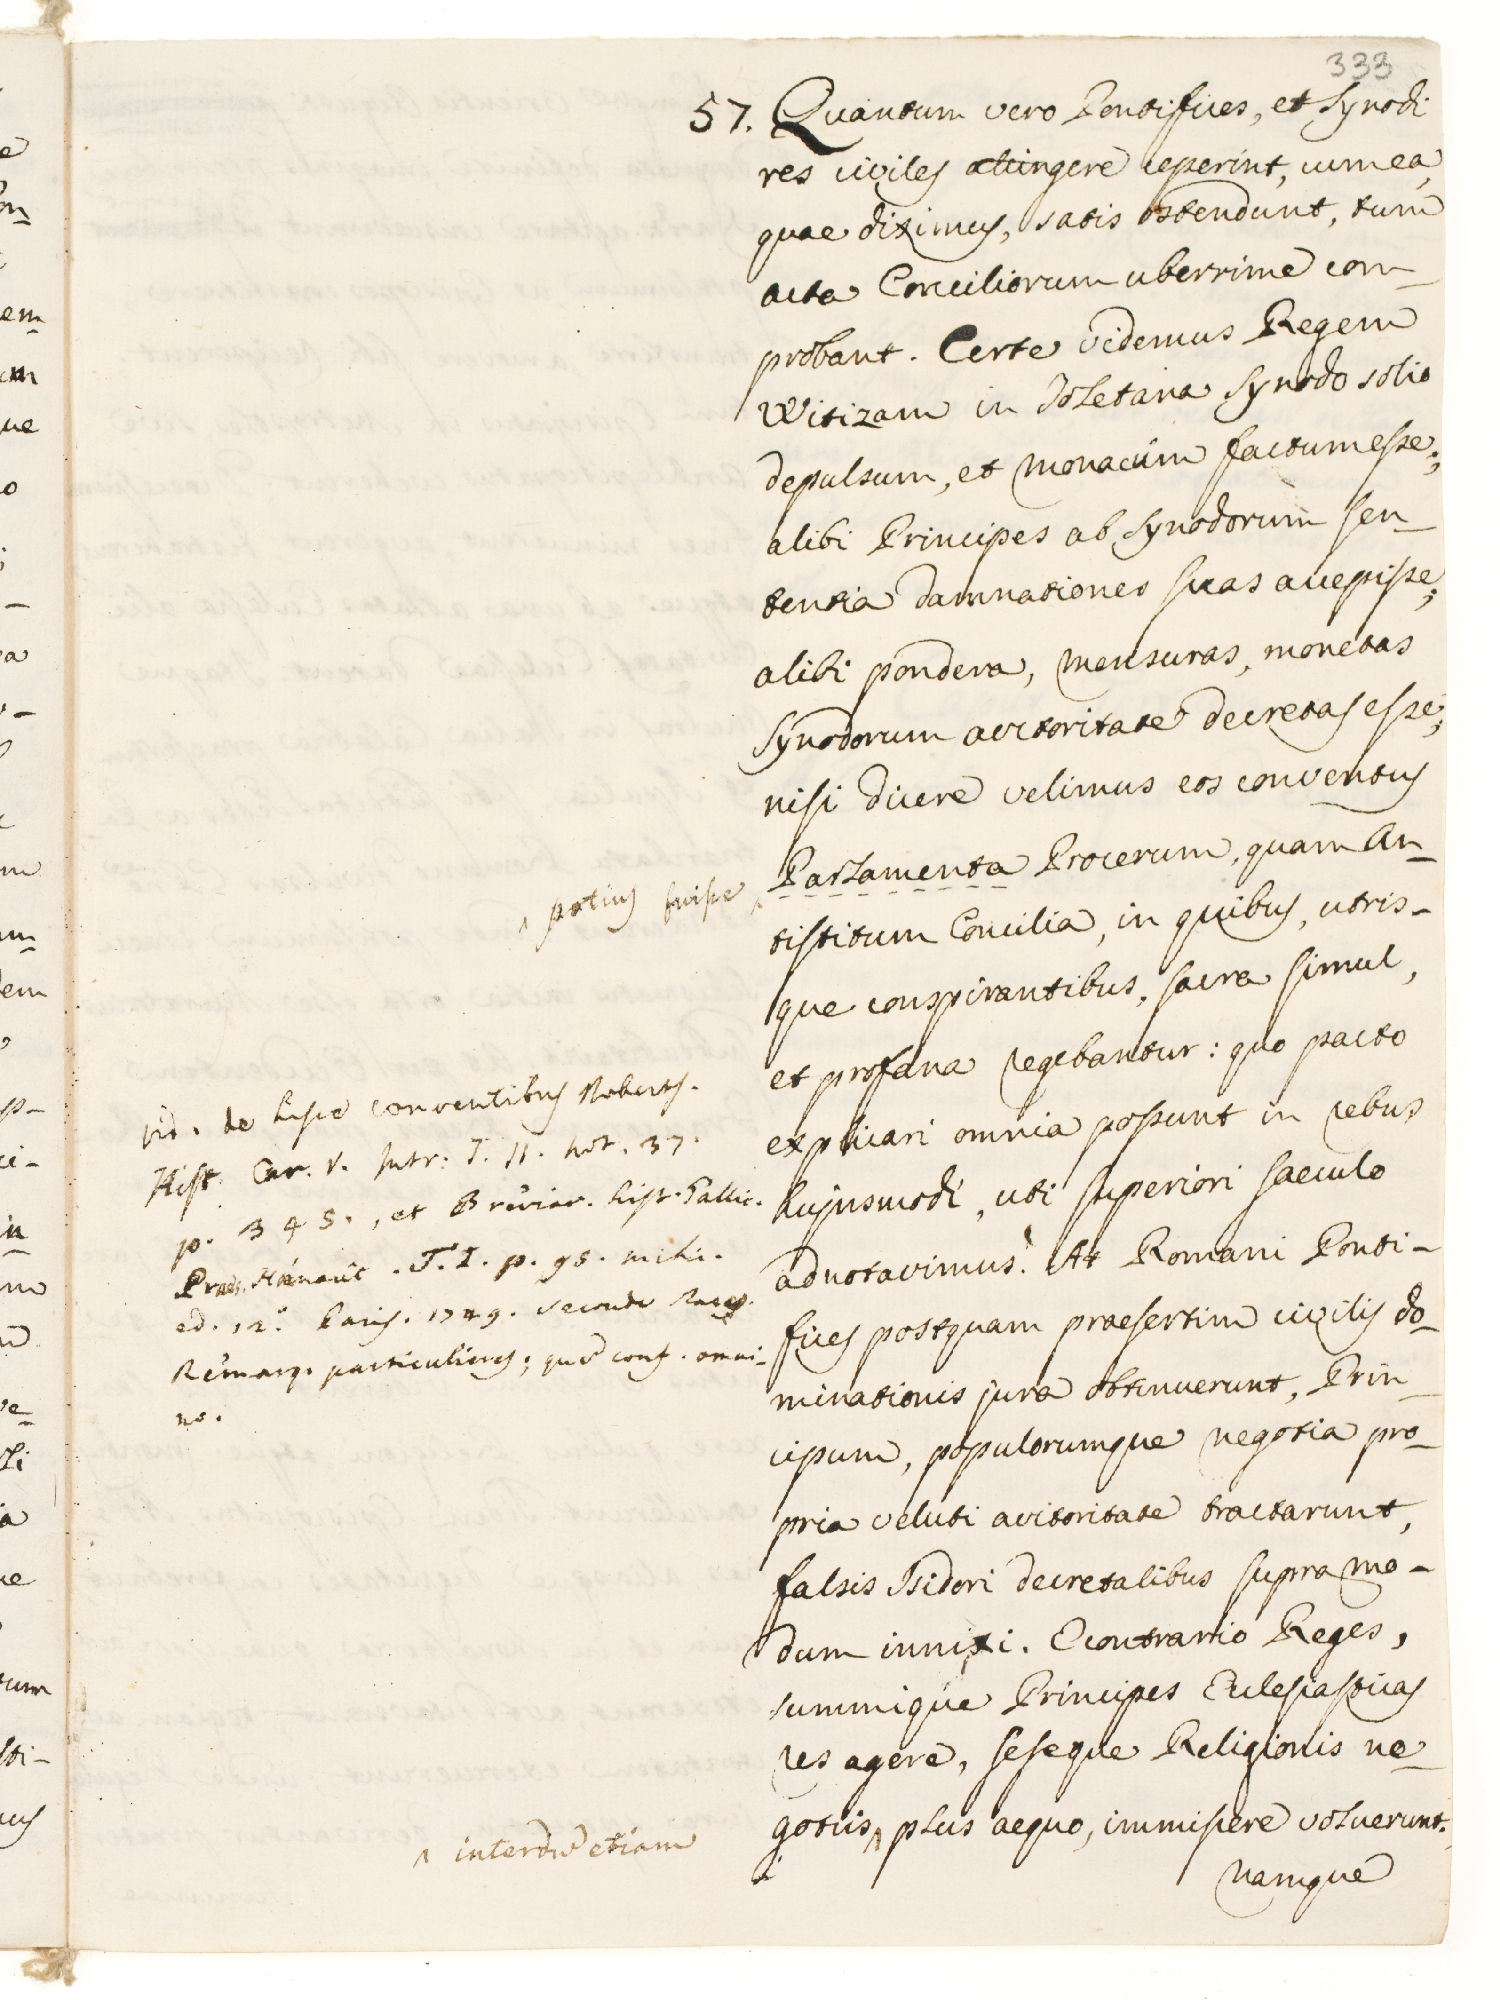 333
57. Quantum vero Pontifices, et Synodi
res civiles attingere ceperint, cum ea,
quae diximus, satis ostendunt, tum
acta Conciliorum uberrime com_
probant. Certe videmus Regem
Witizam in Toletana Synodo solio
depulsum, et monacum factum esse;
alibi Principes ab Synodorum sen_
tentia damnationes suas accepisse;
alibi pondera, mensuras, monetas
Synodorum auctoritate decretas esse;
nisi dicere velimus eos conventus
^ potius fuisse ^
Parlamenta Procerum, quam An_
tistitum Concilia, in quibus, utris-
que conspirantibus, sacra simul,
et profana regebantur: quo pacto
explicari omnia possunt in rebus
hujusmodi, uti superiori saeculo
adnotavimus. At Romani Ponti-
fices postquam praesertim civilis do_
minationis jura obtinuerunt, Prin_
cipum, populorumque negotia pro_
pria veluti auctoritate tractarunt,
falsis Isidori decretalibus supra mo-
dum innixi. Econtrario Reges,
summique Principes Eclesiasticas
res agere, seseque Religionis ne_
gotiis ^ plus aequo, immiscere voluerunt.
^ interdum etiam
namque
vid. de hisce conventibus Roberts.
Hist. Car. V. Intr. T. II. not. 37.
p. 345., et Breviar. hist. Gallic.
Praes. Hénault. T. I. p. 95. mihi.
ed. 12.ª Paris. 1749. seconde Race.
Remarq. particulieres; quem conf. omni_
no.